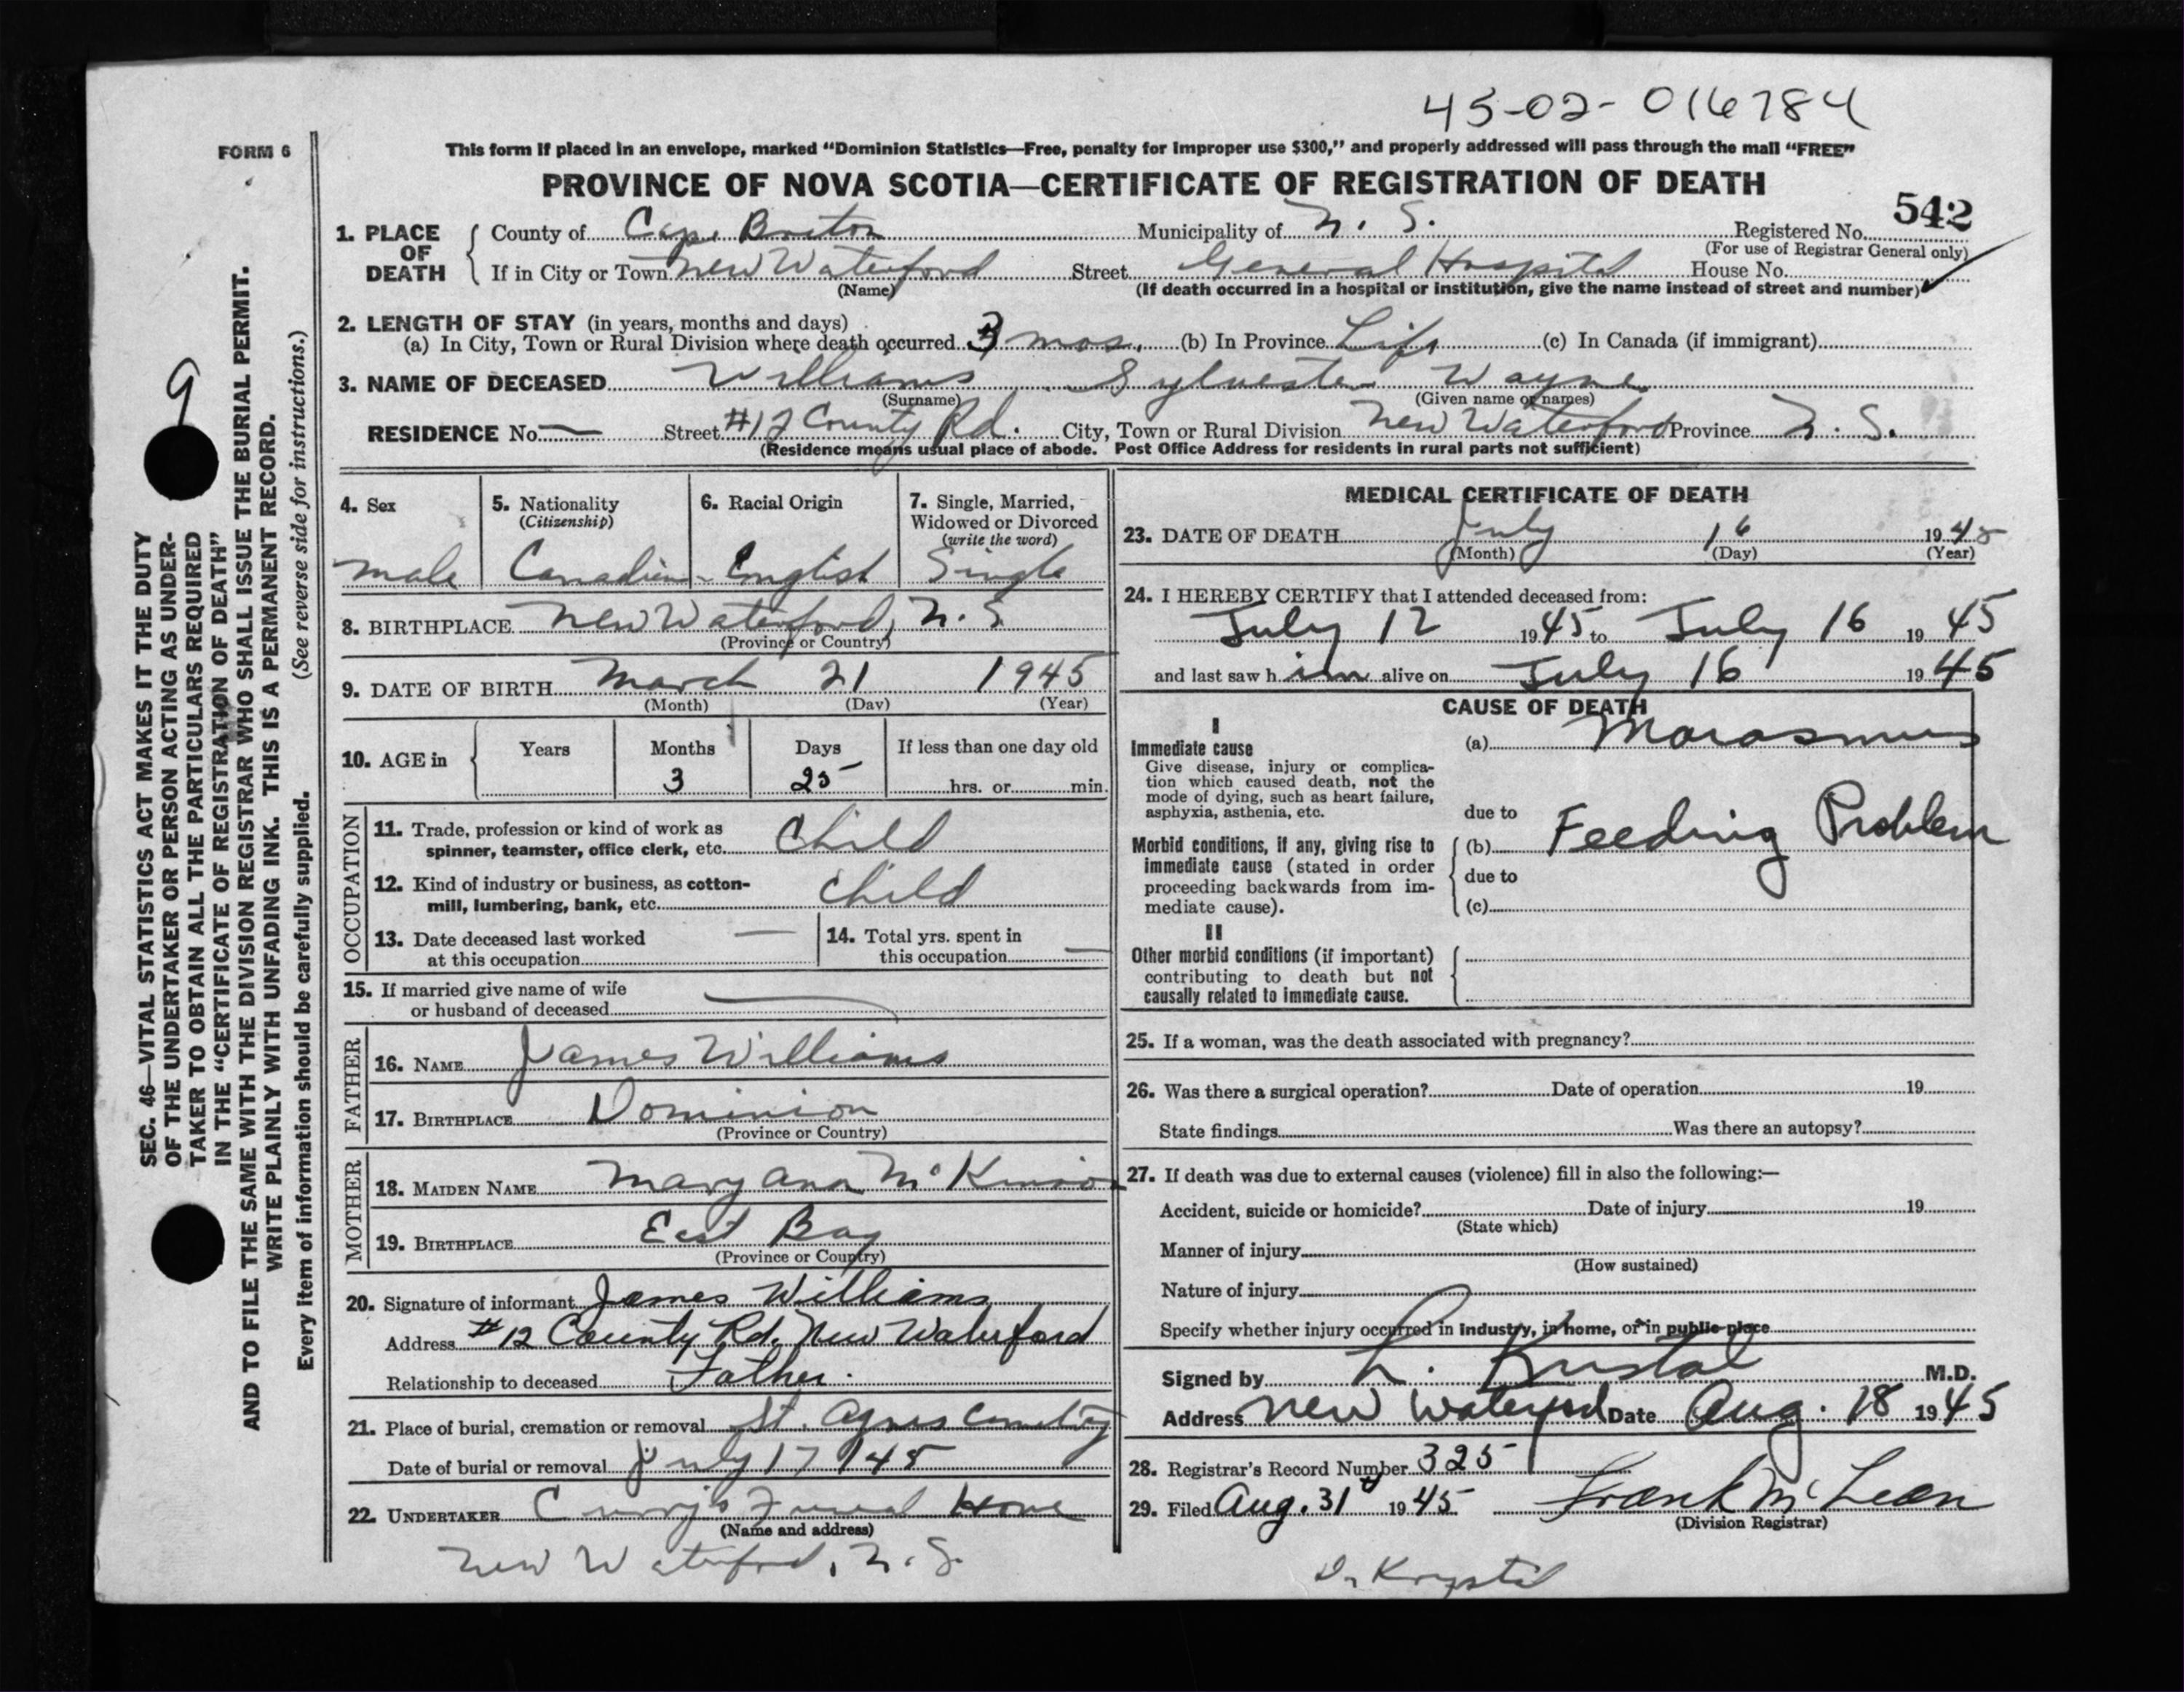 45-02-016784
FORM 6
This form if placed in an envelope, marked "Dominion Statistics—Free, penalty for improper use $300," and properly addressed will pass through the mail "FREE"
PROVINCE OF NOVA SCOTIA—CERTIFICATE OF REGISTRATION OF DEATH
542
1. PLACE OF DEATH
County of Cape Breton Municipality of N. S. Registered No.
(For use of Registrar General only)
If in City or Town New Waterford Street General Hospital House No.
(Name) (If death occurred in a hospital or institution, give the name instead of street and number)
2. LENGTH OF STAY (in years, months and days)
(a) In City, Town or Rural Division where death occurred 3 mos. (b) In Province Life (c) In Canada (if immigrant)
3. NAME OF DECEASED Williams Sylvester Wayne
(Surname) (Given name or names)
RESIDENCE No. — Street #12 County Rd. City, Town or Rural Division New Waterford Province N. S.
(Residence means usual place of abode. Post Office Address for residents in rural parts not sufficient)
4. Sex
male
5. Nationality
(Citizenship)
Canadian
6. Racial Origin
English
7. Single, Married,
Widowed or Divorced
(write the word)
Single
8. BIRTHPLACE New Waterford, N. S
(Province or Country)
9. DATE OF BIRTH March 21 1945
(Month) (Day) (Year)
10. AGE in Years Months Days If less than one day old
3 25 hrs. or min.
OCCUPATION
11. Trade, profession or kind of work as
spinner, teamster, office clerk, etc. Child
12. Kind of industry or business, as cotton-
mill, lumbering, bank, etc. Child
13. Date deceased last worked
at this occupation —
14. Total yrs. spent in
this occupation —
15. If married give name of wife
or husband of deceased —
FATHER
16. NAME James Williams
17. BIRTHPLACE Dominion
(Province or Country)
MOTHER
18. MAIDEN NAME Mary Ann
19. BIRTHPLACE East Bay
(Province or Country)
20. Signature of informant James Williams
Address #12 County Rd. New Waterford
Relationship to deceased Father.
21. Place of burial, cremation or removal St. Agnes Cemetery
Date of burial or removal July 17 1945
22. UNDERTAKER Funeral Home
(Name and address)
New Waterford, N. S.
MEDICAL CERTIFICATE OF DEATH
23. DATE OF DEATH July 16 1945
(Month) (Day) (Year)
24. I HEREBY CERTIFY that I attended deceased from:
July 12 1945 to July 16 1945
and last saw h im alive on July 16 1945
CAUSE OF DEATH
I
Immediate cause
Give disease, injury or complica-
tion which caused death, not the
mode of dying, such as heart failure,
asphyxia, asthenia, etc.
(a) Marasmus
due to
Morbid conditions, if any, giving rise to
immediate cause (stated in order
proceeding backwards from im-
mediate cause).
(b) Feeding Problem
due to
(c)
II
Other morbid conditions (if important)
contributing to death but not
causally related to immediate cause.
25. If a woman, was the death associated with pregnancy?
26. Was there a surgical operation? Date of operation 19
State findings Was there an autopsy?
27. If death was due to external causes (violence) fill in also the following:—
Accident, suicide or homicide? Date of injury 19
(State which)
Manner of injury
(How sustained)
Nature of injury
Specify whether injury occurred in industry, in home, or in public place
Signed by L. M.D.
Address New Waterford Date Aug. 18 1945
28. Registrar's Record Number 325
29. Filed Aug. 31 1945 Frank McLean
(Division Registrar)
Dr Krystal
9
SEC. 46—VITAL STATISTICS ACT MAKES IT THE DUTY
OF THE UNDERTAKER OR PERSON ACTING AS UNDER-
TAKER TO OBTAIN ALL THE PARTICULARS REQUIRED
IN THE "CERTIFICATE OF REGISTRATION OF DEATH"
AND TO FILE THE SAME WITH THE DIVISION REGISTRAR WHO SHALL ISSUE THE BURIAL PERMIT.
WRITE PLAINLY WITH UNFADING INK. THIS IS A PERMANENT RECORD.
Every item of information should be carefully supplied. (See reverse side for instructions.)